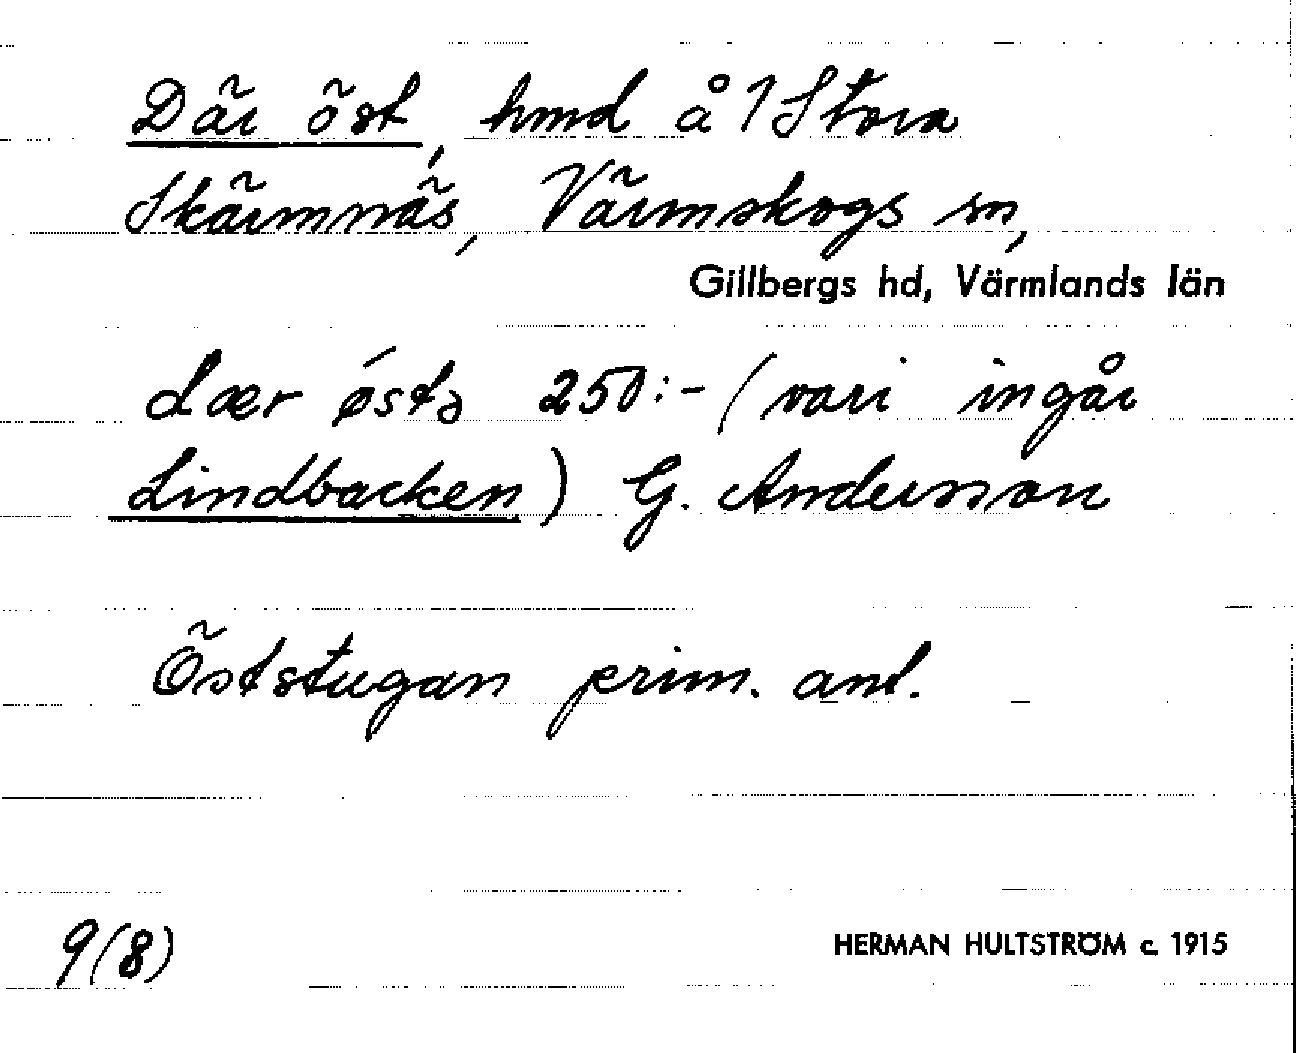 Där öst, hmd å 1 Stora
Skärmnäs, Värmskogs sn,
Gillbergs hd, Värmlands län
dær østə 250:- (vari ingår
Lindbacken) G. Andersson
Öststugan prim. anl.
9(8)
HERMAN HULTSTRÖM c. 1915